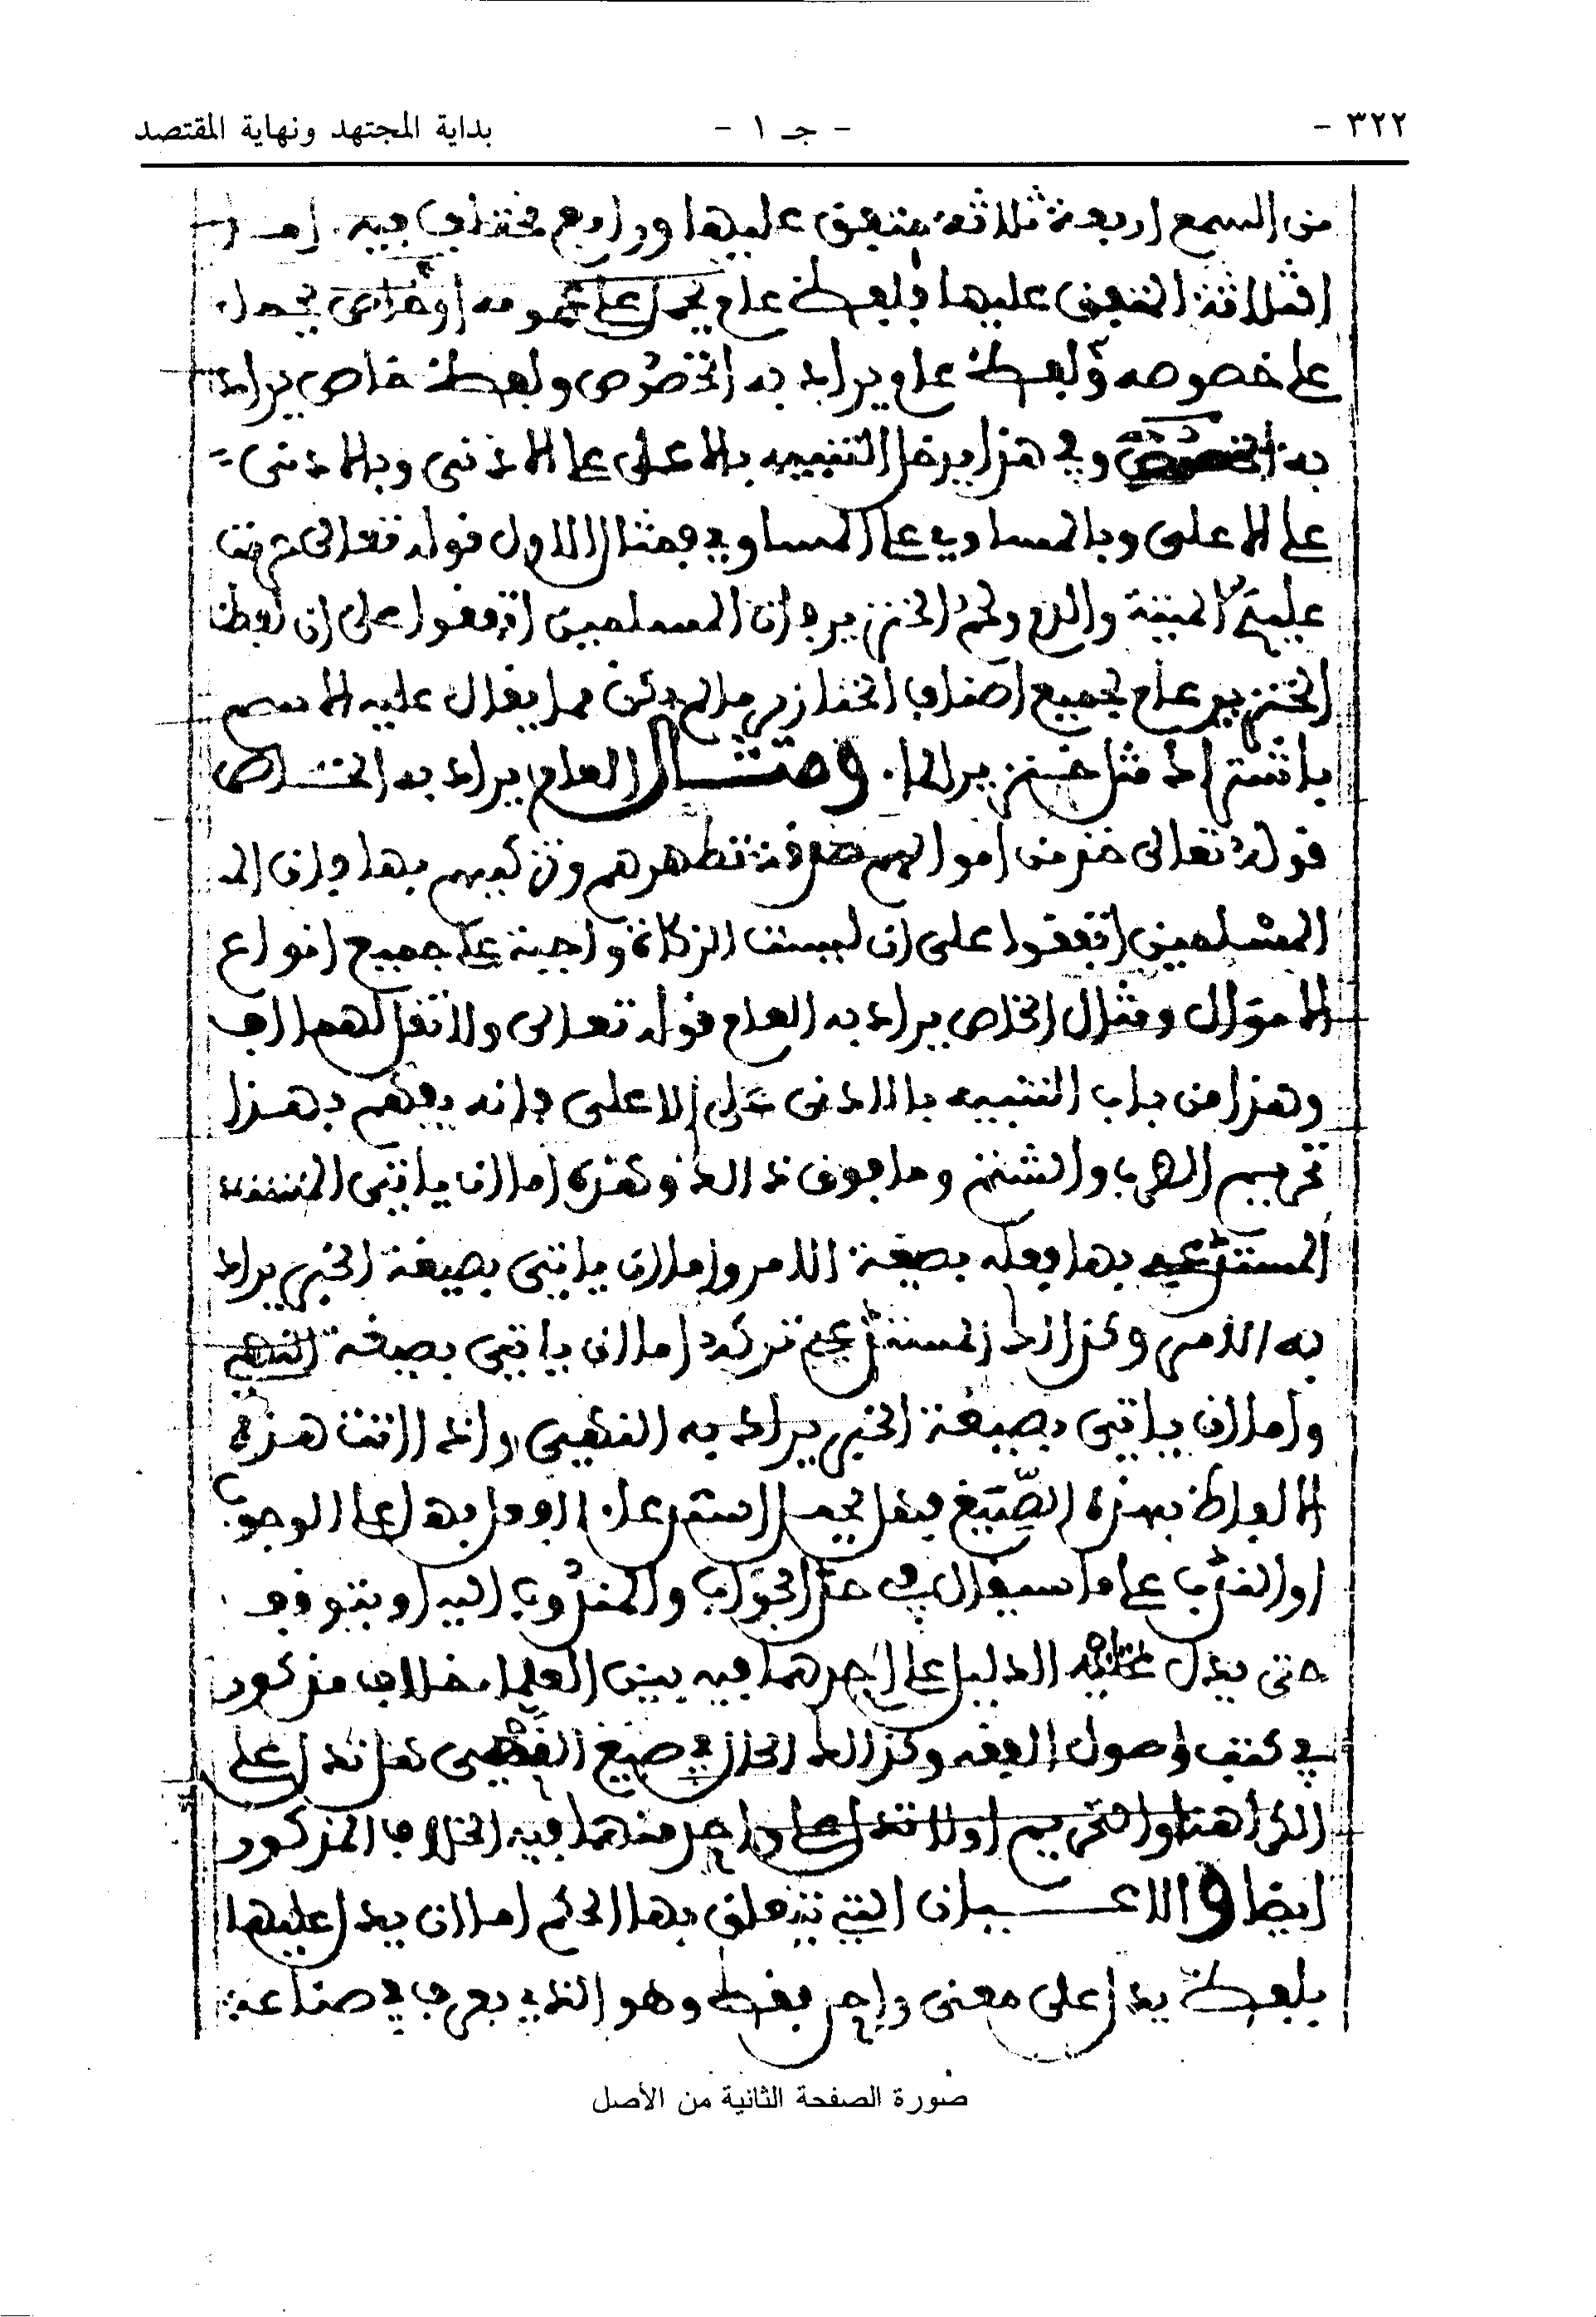 ٣٢٢ - - جـ ١ - بداية المجتهد ونهاية المقتصد
من السمع اربعة ثلاثة متفق عليها ورابع مختلف فيه. امـا
الثلاثة المتفق عليها فلفظ عام يحمل على عمومه او خاص يحمل
على خصوصه ولفظ عام يراد به الخصوص ولفظ خاص يراد
به وفي هذا يدخل التنبيه بالاعلى على الادنى وبالادنى
على الاعلى وبالمساوي على المساوي فمثال الاول قوله تعالى حرمت
عليكم الميتة والدم ولحم الخنزير فان المسلمين اتفقوا على ان لفظ
الخنزير عام لجميع اصناف الخنازير ما لم يكن مما يقال عليه الاسم
باشتراك مثل خنزير الما. ومثـال العام يراد به الخـاص
قوله تعالى خذ من اموالهم صدقة تطهرهم وتزكيهم بها فان الـ
المسلمين اتفقوا على ان ليست الزكاة واجبة على جميع انواع
الاموال ومثال الخاص يراد به العام قوله تعالى ولا تقل لهما اف
وهذا من باب التنبيه بالادنى على الاعلى فانه يفهم بهذا
تحريم الضرب والشتم وما فوق ذالك وهذه اما ان ياتي
المستدعى بها فعله بصيغة الامر واما ان ياتي بصيغة الخبر يراد
به الامر وكذالك المستدعى تركه اما ان ياتي بصيغة النهي
واما ان ياتي بصيغة الخبر يراد به النهي واذا اتت هذه
الالفاظ بهذه الصيغ فهل يحمل استدعاء الفعل بها على الوجوب
او الندب على ما سيقال في حد الواجب والمندوب اليه او يتوقف
حتى يدل الدليل على احدهما فيه بين العلماء خلاف مذكور
في كتب اصول الفقه وكذالك الحال في صيغ النهي هل تدل على
الكراهة او التحريم او لا تدل على واحد منهما فيه الخلاف المذكور
ايضا والاعـيان التي يتعلق بها الحكم اما ان يدل عليها
بلفظ يدل على معنى واحد فقط وهو الذي يعرف في صناعة
صورة الصفحة الثانية من الأصل